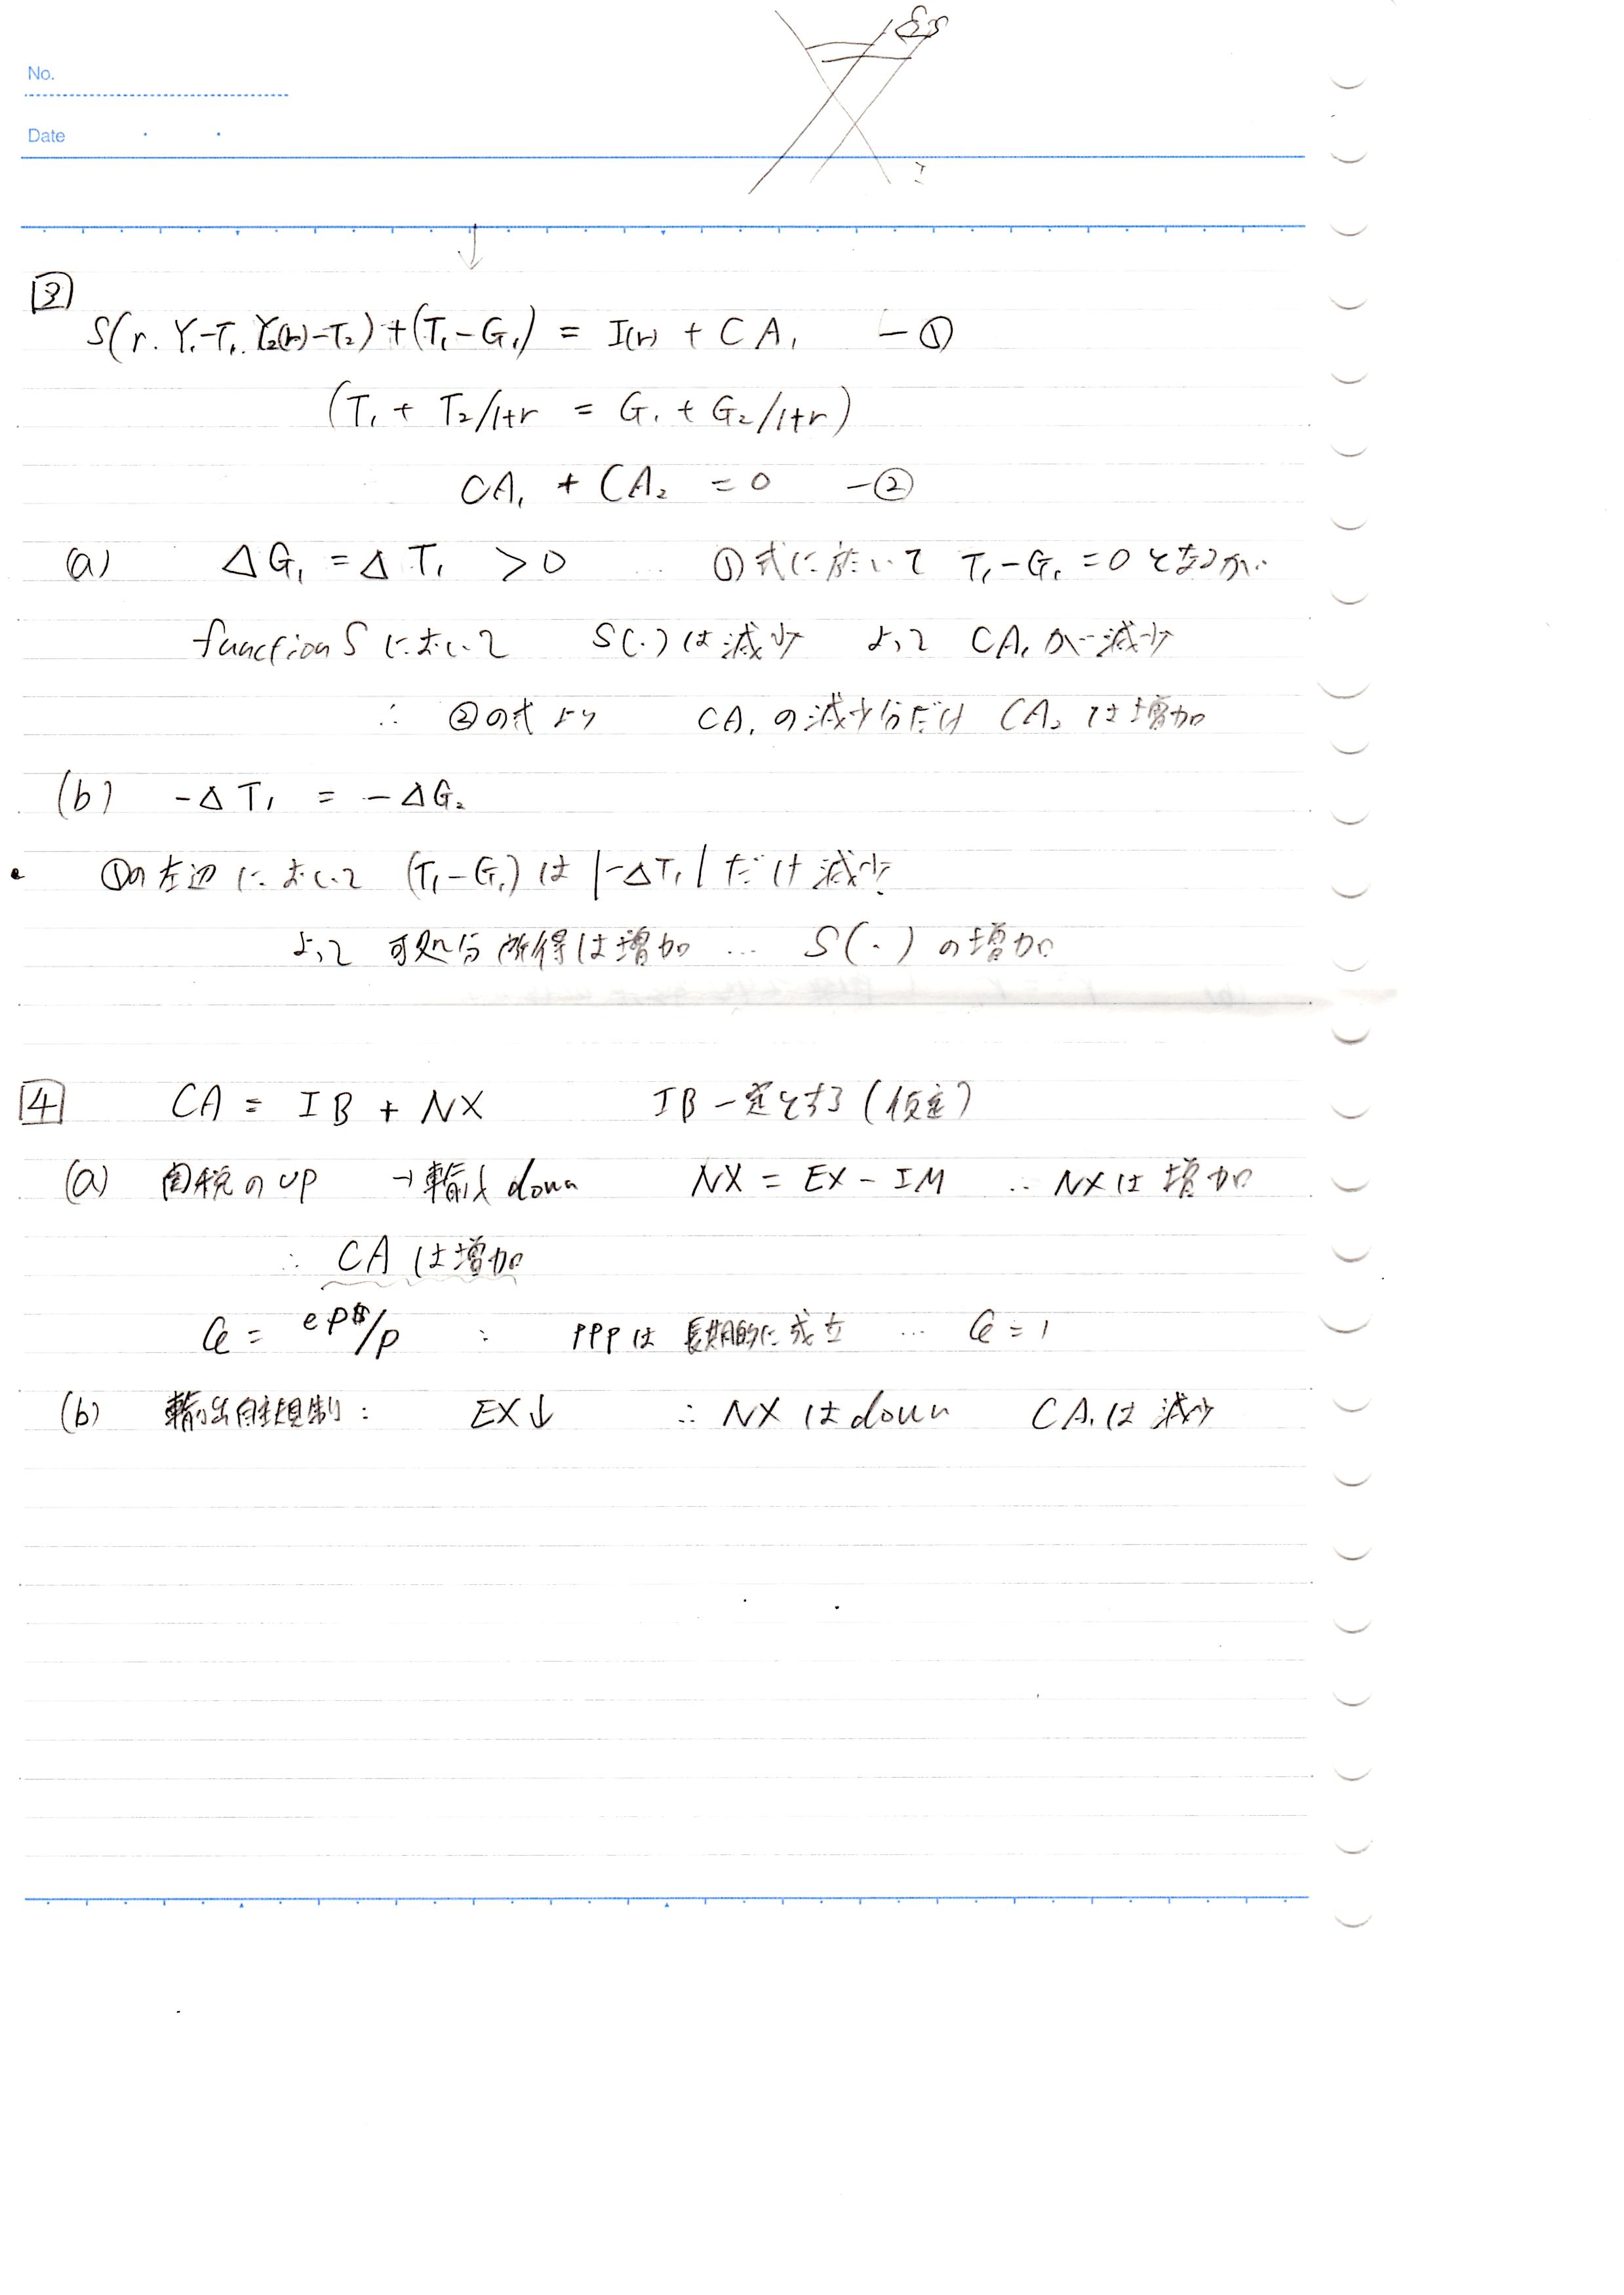 No.
Date
S
I
3
S(r. Y₁-T₁. Y₂(r)-T₂)+(T₁-G₁) = I(r) + CA₁ -①
(T₁ + T₂/1+r = G₁ + G₂/1+r)
CA₁ + CA₂ = 0 -②
(a) ΔG₁ = ΔT₁ > 0 … ①式に於いて T₁-G₁ = 0 となるが.
function S において S(・)は減少 よって CA₁が減少
∴ ②の式より CA₁の減少分だけ CA₂は増加
(b) -ΔT₁ = -ΔG₂
①の左辺において (T₁-G₁)は |-ΔT₁| だけ減少
よって 可処分所得は増加 … S(・)の増加
4 CA = IB + NX IB一定とする(仮定)
(a) 関税のup → 輸入down NX = EX - IM ∴ NXは増加
∴ CAは増加
e = eP$/P : PPPは長期的に成立 … e = 1
(b) 輸出自主規制: EX↓ ∴ NXはdown CA₁は減少